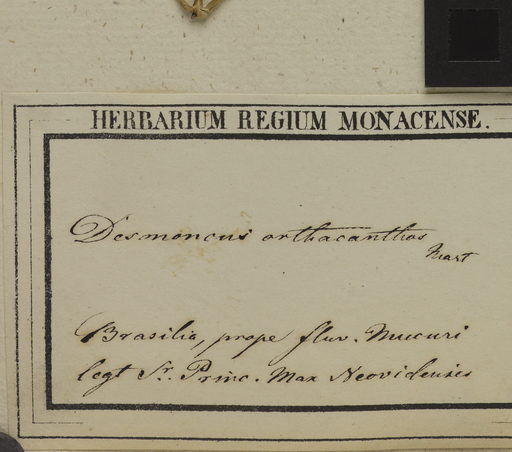 HERBARIUM REGIUM MONACENSE.
Desmoncus orthacanthos
Mart
Brasilia, prope fluv. Mucuri
legt Sr. Princ. Max Neovidensis